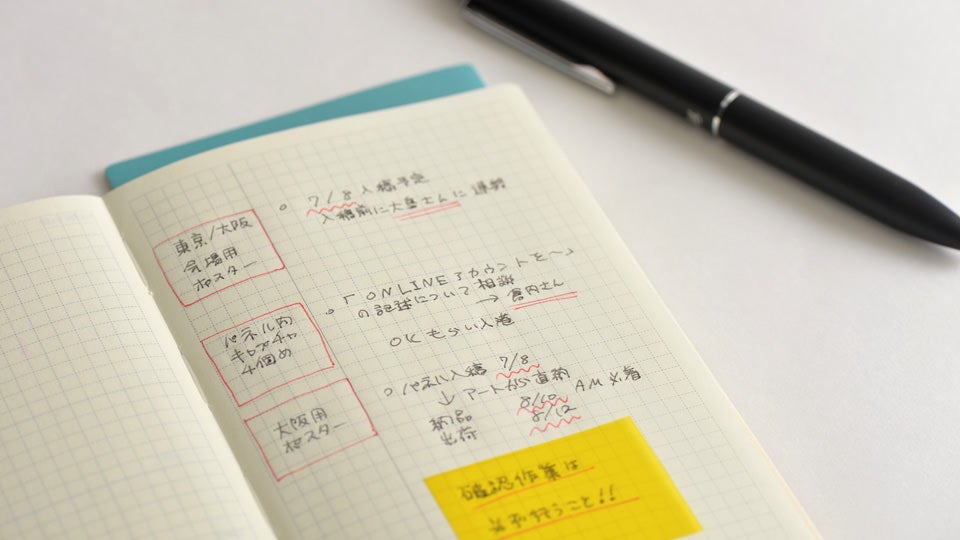 東京/大阪
会場用
ポスター
7/8 入稿予定
入稿前に大島さんに連絡
パネル内
キャプチャ
4個め
「ONLINEアカウントを〜」
の記述について相談
→ 倉内さん
OKもらい入稿
大阪用
ポスター
パネル入稿 7/8
↓ アートから直納
納品 8/10 AM必着
出荷 8/12
確認作業は
必ず行うこと!!